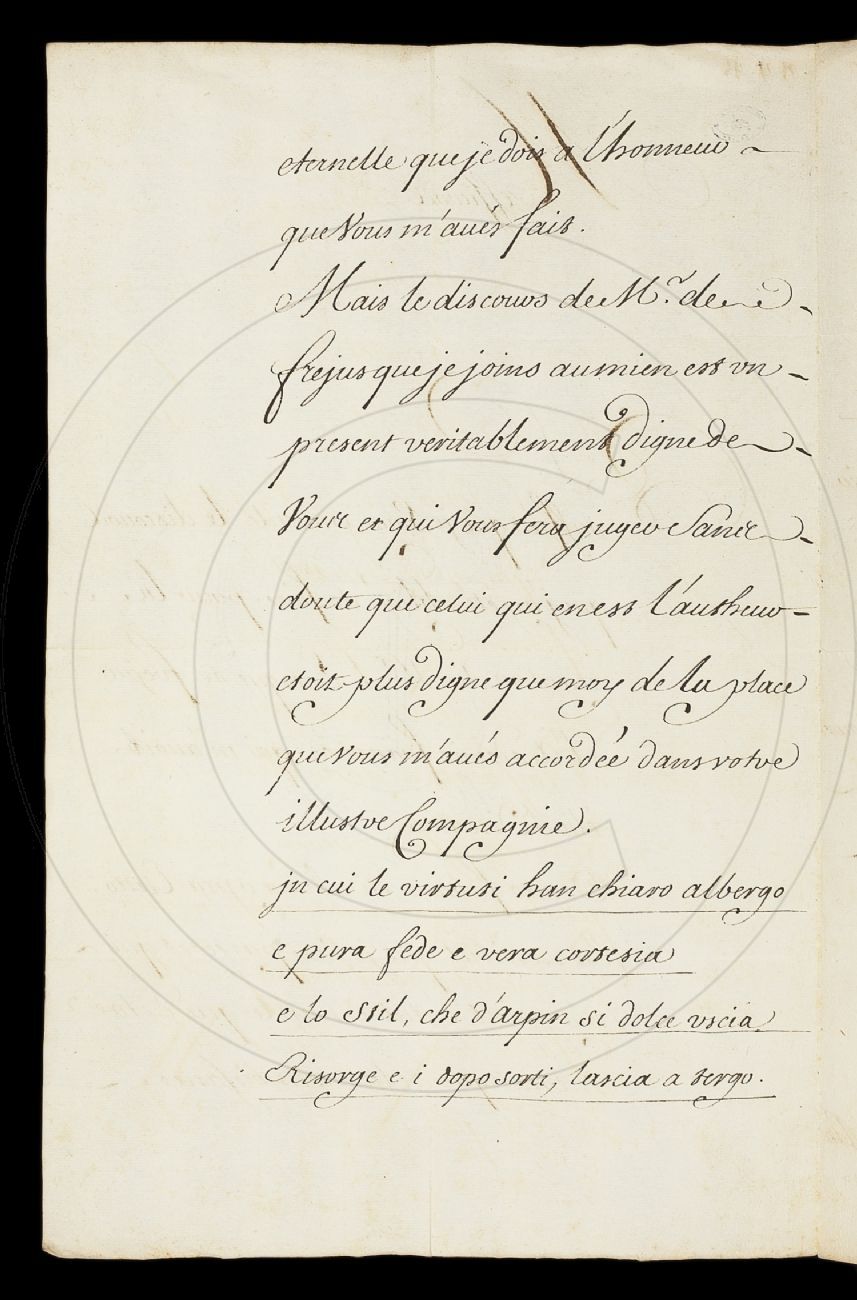 eternelle que je dois a l'honneur
que Vous m'aués fait.
Mais le discours de Mr. de
frejus que je joins au mien est vn
present veritablement digne de
Vous et qui Vous fera juger Sans
doute que celui qui en est l'autheur
etoit plus digne que moy de la place
que vous m'aués accordée dans votre
illustre Compagnie.
jn cui le virtuti han chiaro albergo
e pura féde e vera cortesia
e lo stil, che d'arpin si dolce vscia
Risorge e i dopo sorti, lascia a tergo.